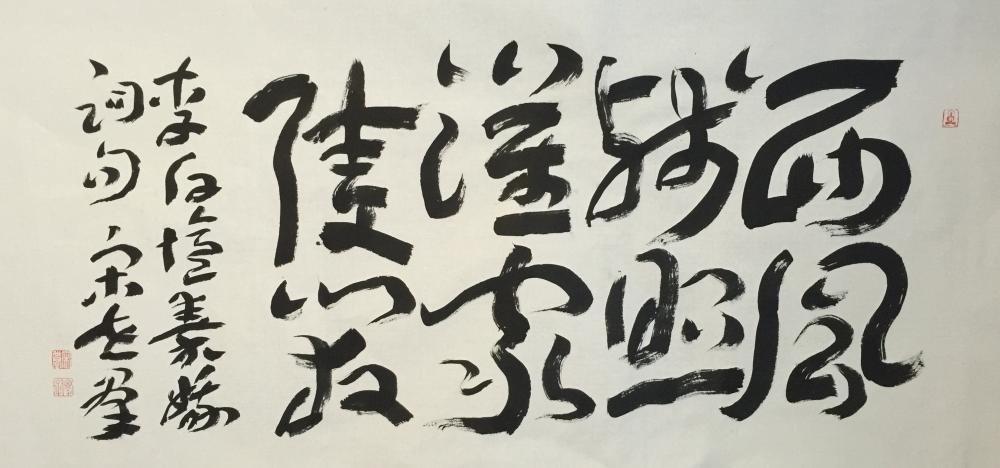 西風
殘照
漢家
陵闕
李白憶秦娥
詞句 宋